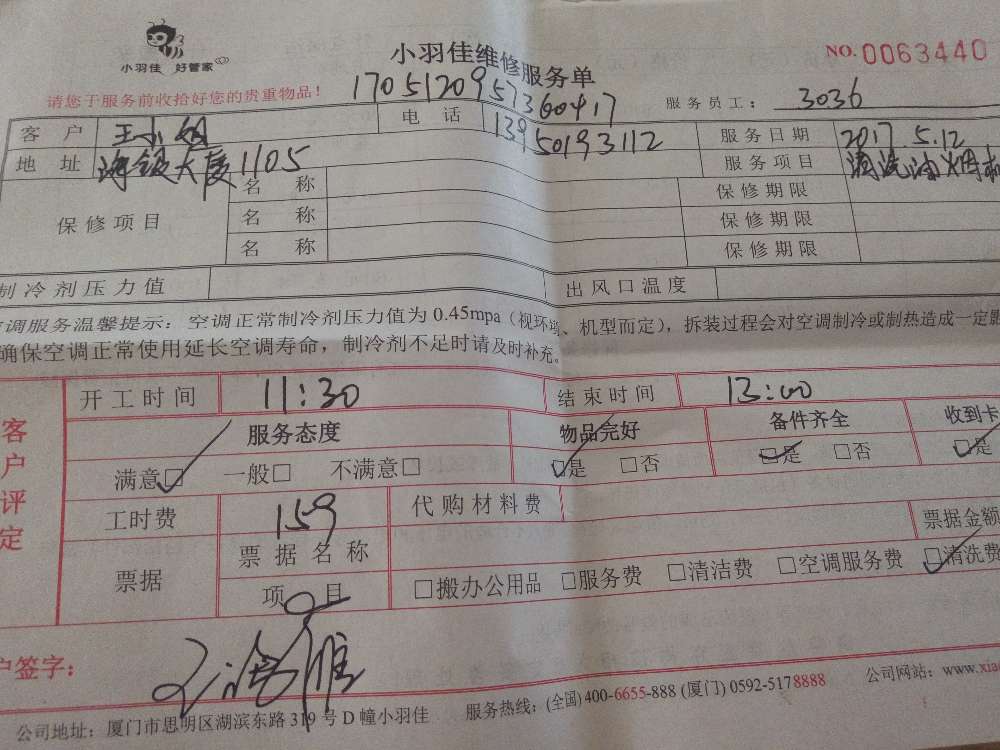 小羽佳 好管家
小羽佳维修服务单
NO.0063440
请您于服务前收拾好您的贵重物品！
1705120957360417
服务员工： 3036
客户 王小姐 电话 13950193112 服务日期 2017.5.12
地址 海银大厦1105 服务项目 清洗油烟机
保修项目 名称 保修期限
名称 保修期限
名称 保修期限
制冷剂压力值 出风口温度
调服务温馨提示：空调正常制冷剂压力值为0.45mpa（视环境、机型而定），拆装过程会对空调制冷或制热造成一定
确保空调正常使用延长空调寿命，制冷剂不足时请及时补充。
客户评定
开工时间 11:30 结束时间 13:00
服务态度 物品完好 备件齐全 收到卡
满意□ 一般□ 不满意□ □是 □否 □是 □否 □是
工时费 159 代购材料费
票据 票据名称 票据金额
项目 □搬办公用品 □服务费 □清洁费 □空调服务费 □清洗费
户签字：
公司地址：厦门市思明区湖滨东路319号D幢小羽佳 服务热线：(全国)400-6655-888 (厦门) 0592-5178888 公司网站：www.xia